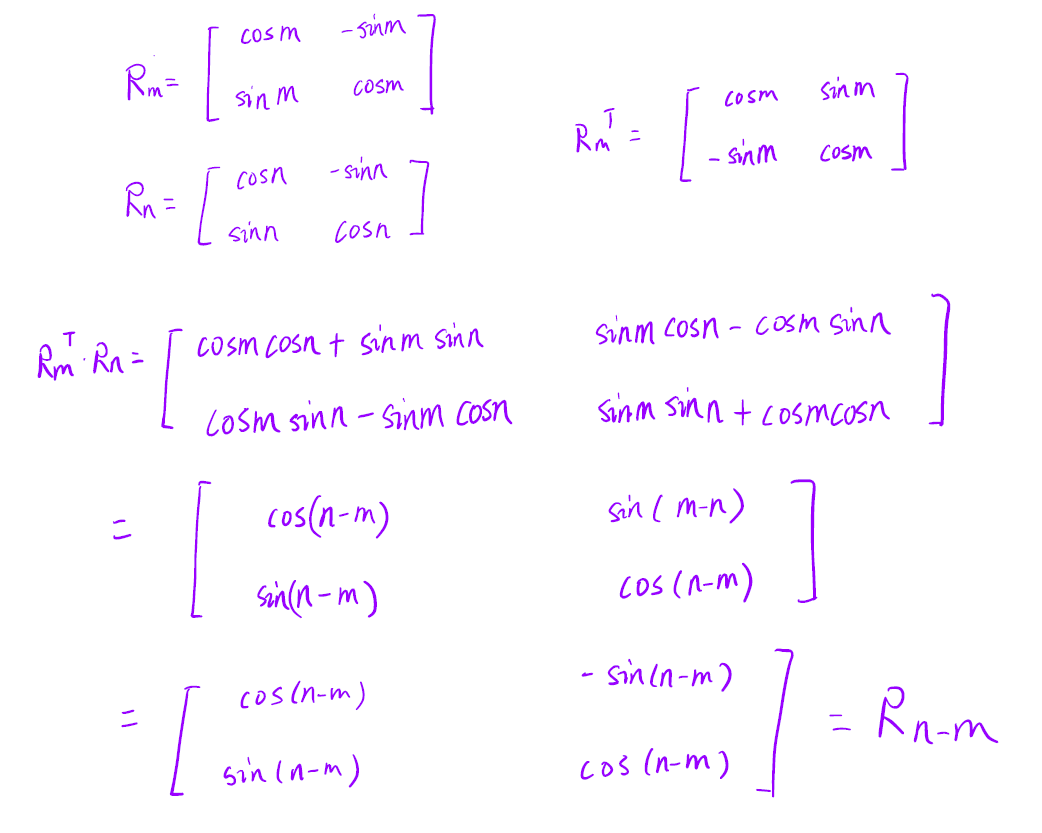 Rm = [ cosm -sinm
sinm cosm ]
Rmᵀ = [ cosm sinm
-sinm cosm ]
Rn = [ cosn -sinn
sinn cosn ]
Rmᵀ · Rn = [ cosm cosn + sinm sinn sinm cosn - cosm sinn
cosm sinn - sinm cosn sinm sinn + cosm cosn ]
= [ cos(n-m) sin(m-n)
sin(n-m) cos(n-m) ]
= [ cos(n-m) -sin(n-m)
sin(n-m) cos(n-m) ] = Rn-m